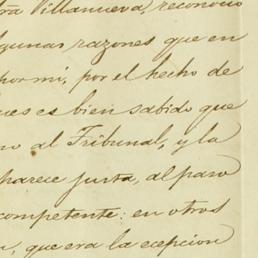 ra Villanueva, reconocio
lgunas razones que en
por mi, por el hecho de
ues es bien sabido que
no al Tribunal, y la
parece justa, al paso
competente: en otros
, que era la ecepcion